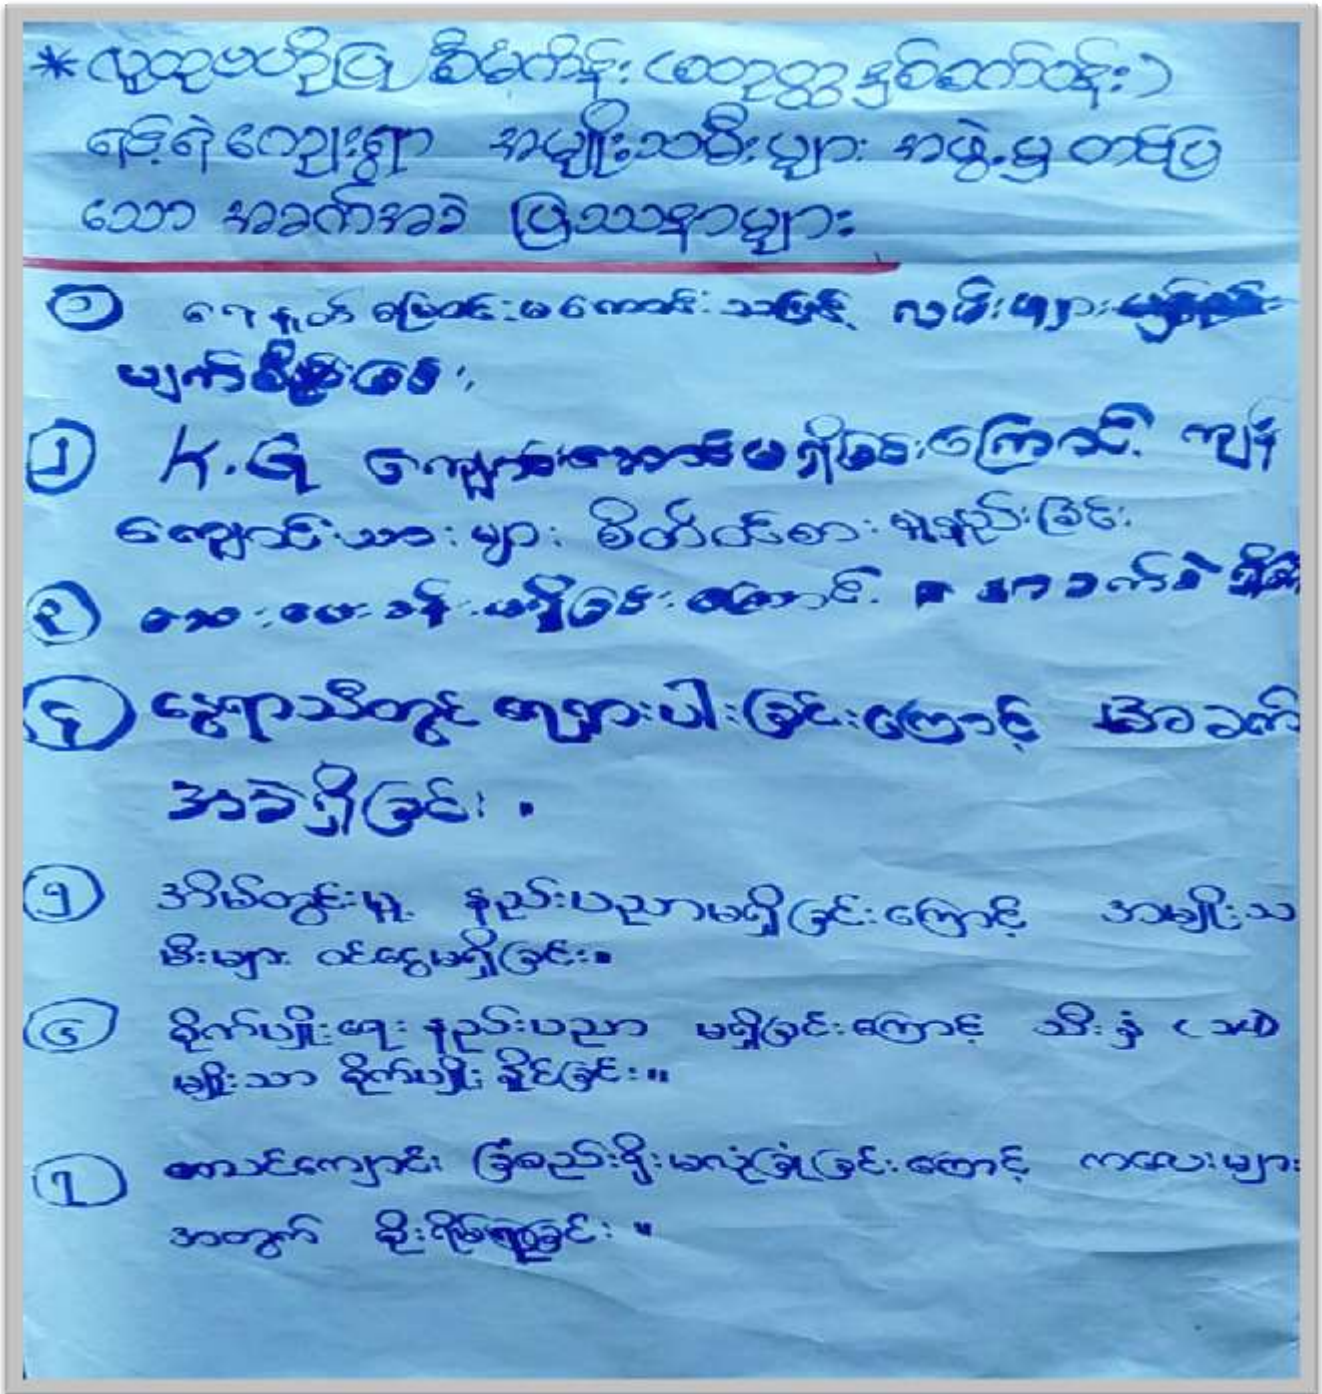 * လူထုဗဟိုပြု စီမံကိန်း (စတုတ္ထနှစ်ဆက်ဝန်း)
ရင့်ရဲကျေးရွာ အမျိုးသမီးများ အဖွဲ့မှ တင်ပြ
သော အခက်အခဲ ပြဿနာများ
၁ ရေနုတ်မြောင်းမကောင်းသဖြင့် လမ်းများ
ပျက်စီးခြင်း
၂ K.G ကျောင်းဆောင်မရှိခြင်းကြောင့် ကျန်
ကျောင်းသားများ စိတ်ဝင်စားမှုနည်းခြင်း
၃ ဆေးပေးခန်းမရှိခြင်းကြောင့် အခက်ခဲ
၄ နွေရာသီတွင် ရေရှားပါးခြင်းကြောင့် အခက်
အခဲရှိခြင်း။
၅ အိမ်တွင်းမှု နည်းပညာမရှိခြင်းကြောင့် အမျိုးသ
မီးများ ဝင်ငွေမရှိခြင်း။
၆ စိုက်ပျိုးရေး နည်းပညာ မရှိခြင်းကြောင့် သီးနှံ (၁)
မျိုးသာ စိုက်ပျိုးနိုင်ခြင်း။
၇ စာသင်ကျောင်း ခြံစည်းရိုးမလုံခြုံခြင်းကြောင့် ကလေးများ
အတွက် စိုးရိမ်ရခြင်း။